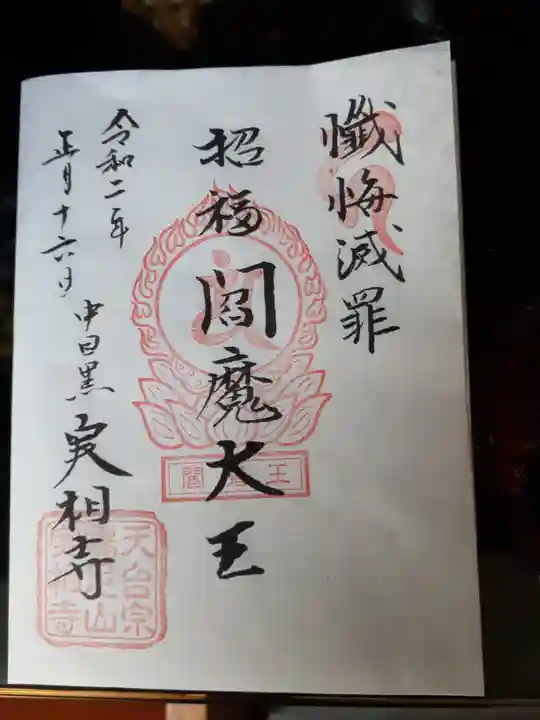 懺悔滅罪
招福 閻魔大王
令和二年
正月十六日 中目黒 実相寺
閻魔王
天台宗
山
寺